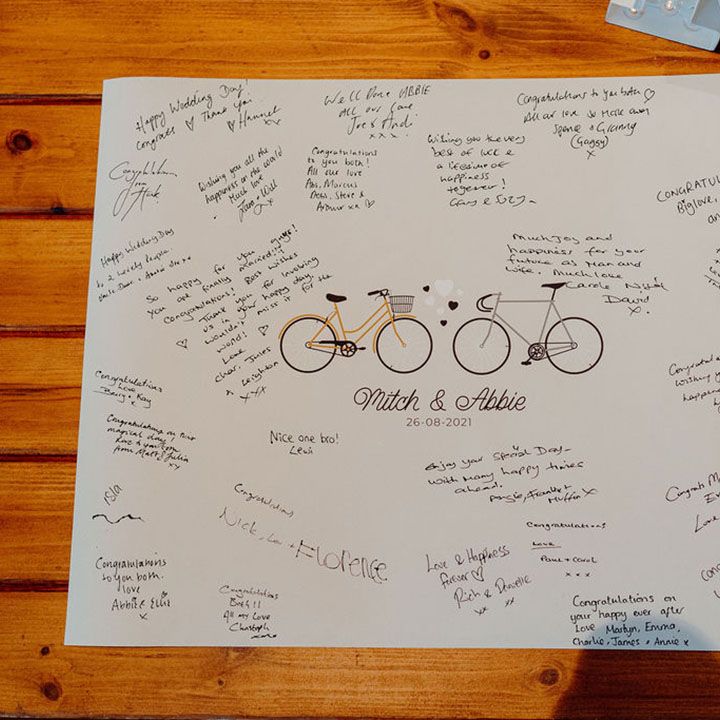 Happy Wedding Day!
Congrats Thank you
Hannah xx
Well Done ABBIE
All our love
Joe & Andi
x x x
Congratulations to you both
All our love
x
Congratulations
from
Wishing you all the
happiness in the world
Much love
Congratulations
to you both!
All our love
Marcus
Steve &
Wishing you the very
best of luck &
a lifetime of
happiness
together!
Gary &
CONGRATUL
Big love,
Happy Wedding Day
to 2 lovely people
So happy for you guys!
you are finally married!!!
Congratulations! Best wishes
Thank you for involving
us in your happy day,
wouldn't miss it for the
world!
Love
Char, Jules
& Leighton
xxx
Much Joy and
happiness for your
future as Man and
Wife. Much love
Carole
David
x.
Mitch & Abbie
26-08-2021
Congratulations
Love Kay
Barry x
Congratulations on your
magical day,
from Matt & Julia
xx
Nice one bro!
Lewis
Congratul
Wishing y
happin
Enjoy your Special Day
with many happy times
ahead.
Angie,
Muffin x
Isla
Congratulations
Nick, + Florence
Congratulations
Love
Paul + Carol
x x x
Congrats M
Love
Congratulations
to you both.
love
Abbie & Ellis
x
Congratulations
Both !!
All my Love
Love & Happiness
forever
Rich & Danielle
xx xx
Congratulations on
your happy ever after
Love Martyn, Emma,
Charlie, James & Annie x